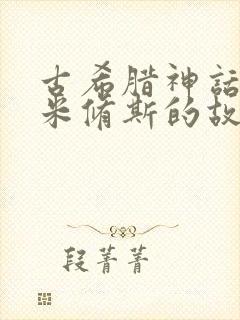 古希腊神话
米脩斯的故
段菁菁